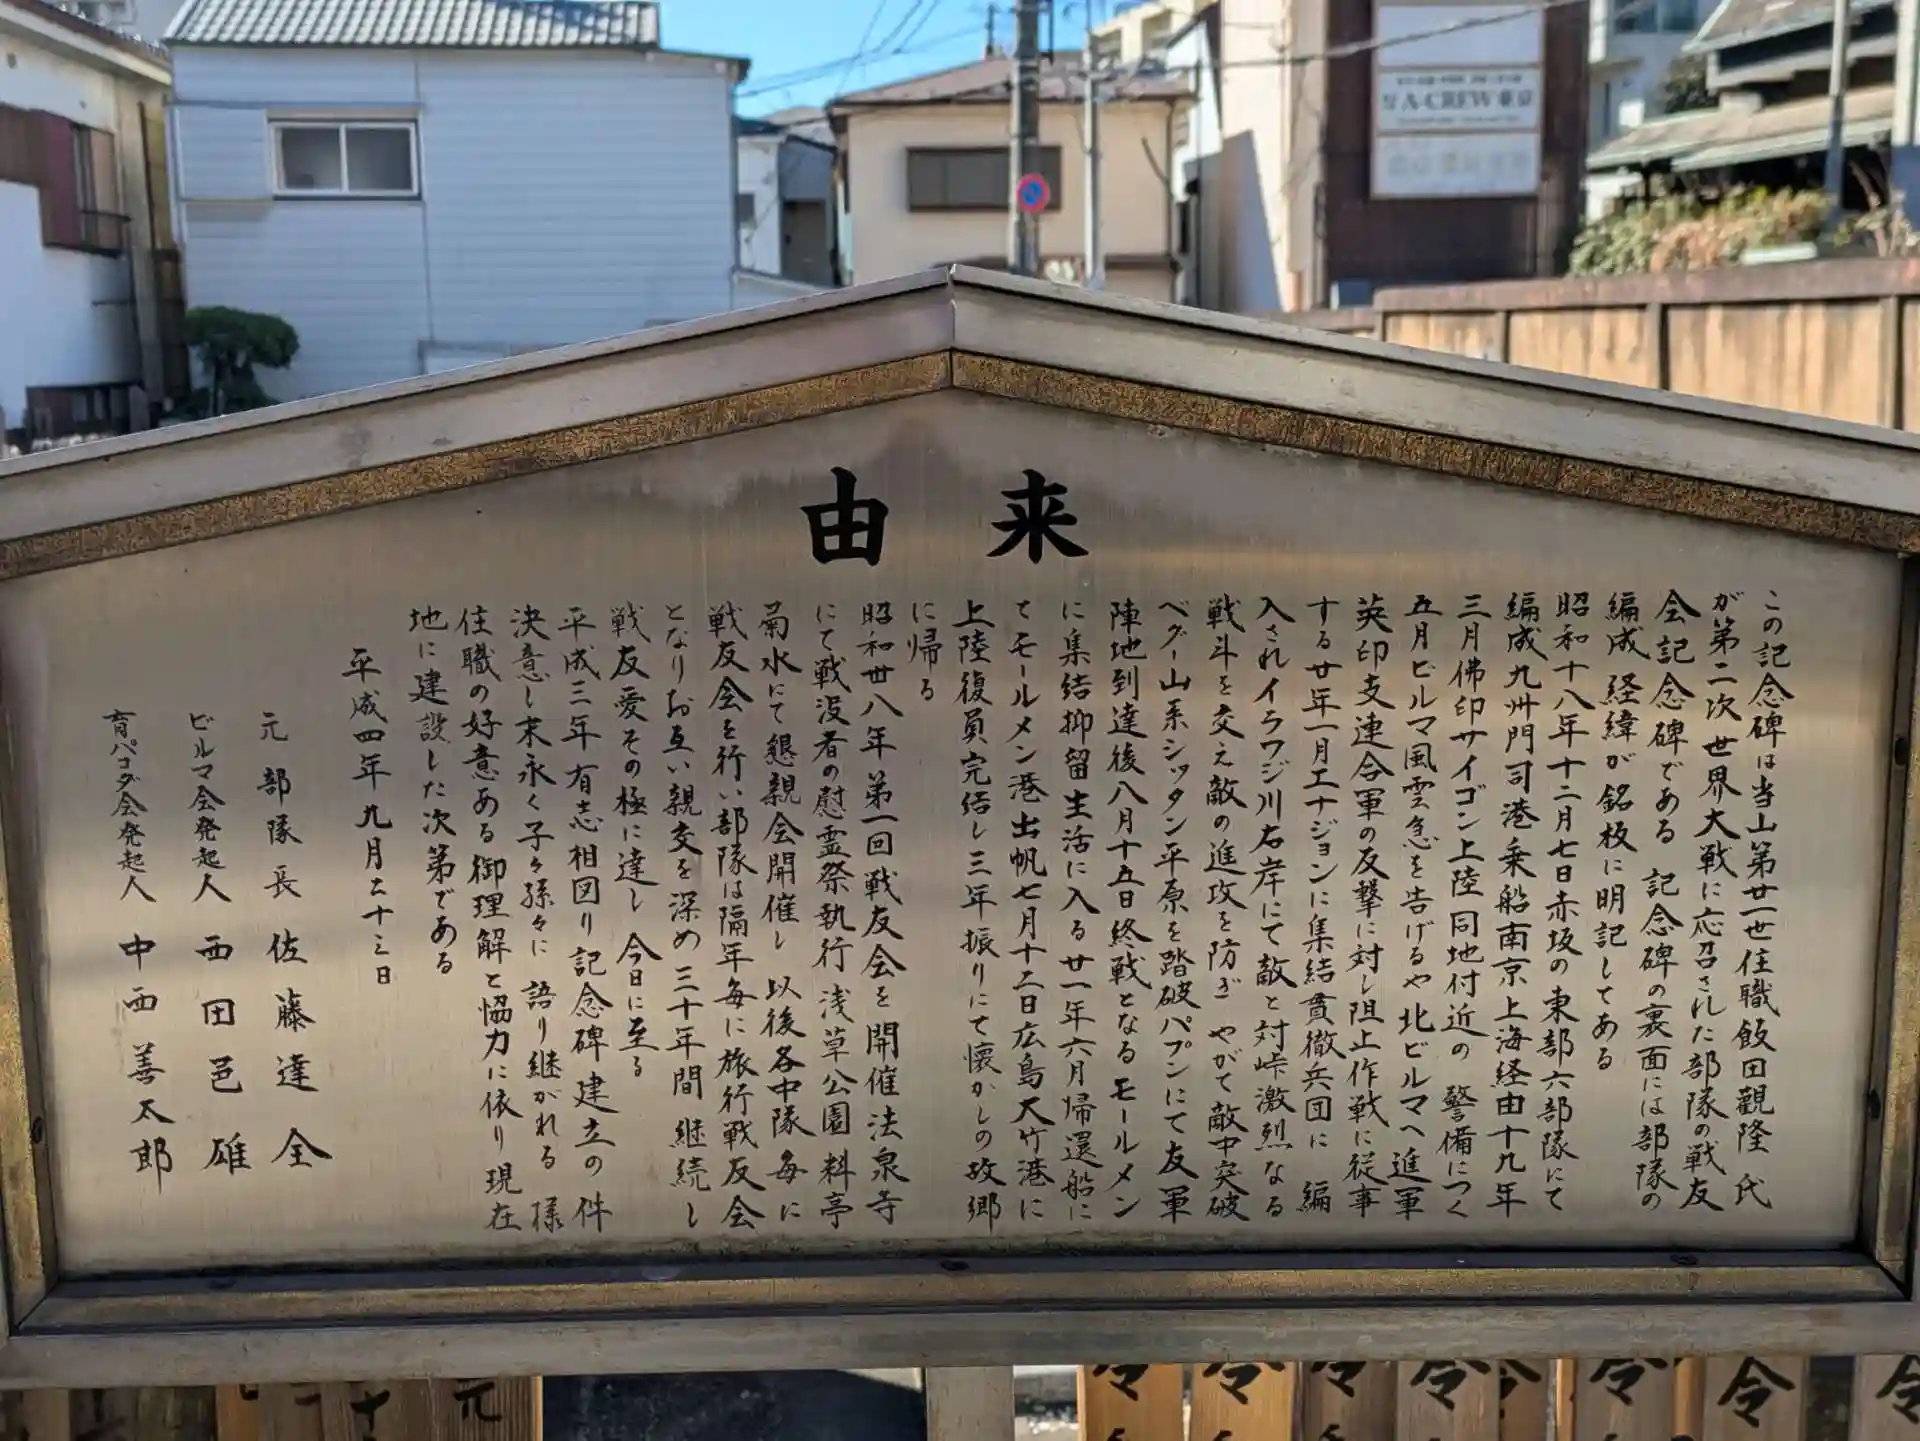 A-CREW東京
由来
この記念碑は当山第廿一世住職飯田観隆氏
が第二次世界大戦に応召された部隊の戦友
会記念碑である 記念碑の裏面には部隊の
編成経緯が銘板に明記してある
昭和十八年十二月七日赤坂の東部六部隊にて
編成九州門司港乗船南京上海経由十九年
三月佛印サイゴン上陸同地付近の警備につく
五月ビルマ風雲急を告げるや北ビルマへ進軍
英印支連合軍の反撃に対し阻止作戦に従事
する廿年一月エナジョンに集結貫徹兵団に編
入されイラワジ川右岸にて敵と対峙激烈なる
戦斗を交え敵の進攻を防ぎ やがて敵中突破
ペグー山系シッタン平原を踏破パプンにて友軍
陣地到達後八月十五日終戦となるモールメン
に集結抑留生活に入る廿一年六月帰還船に
てモールメン港出帆七月十二日広島大竹港に
上陸復員完結し三年振りにて懐かしの故郷
に帰る
昭和卅八年第一回戦友会を開催法泉寺
にて戦没者の慰霊祭執行浅草公園料亭
菊水にて懇親会開催し 以後各中隊毎に
戦友会を行い部隊は隔年毎に旅行戦友会
となりお互い親交を深め三十年間継続し
戦友愛その極に達し今日に至る
平成三年有志相図り記念碑建立の件
決意し末永く子々孫々に語り継がれる様
住職の好意ある御理解と協力に依り現在
地に建設した次第である
平成四年九月二十三日
元部隊長 佐藤達全
ビルマ会発起人 西田邑雄
育パコダ会発起人 中西善太郎